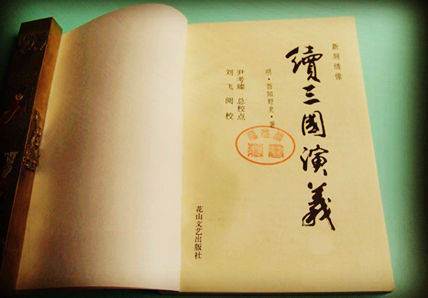 新刻绣像
續三國演義
明·酉阳野史·著
尹考臻 总校点
刘飞 阅校
花山文艺出版社